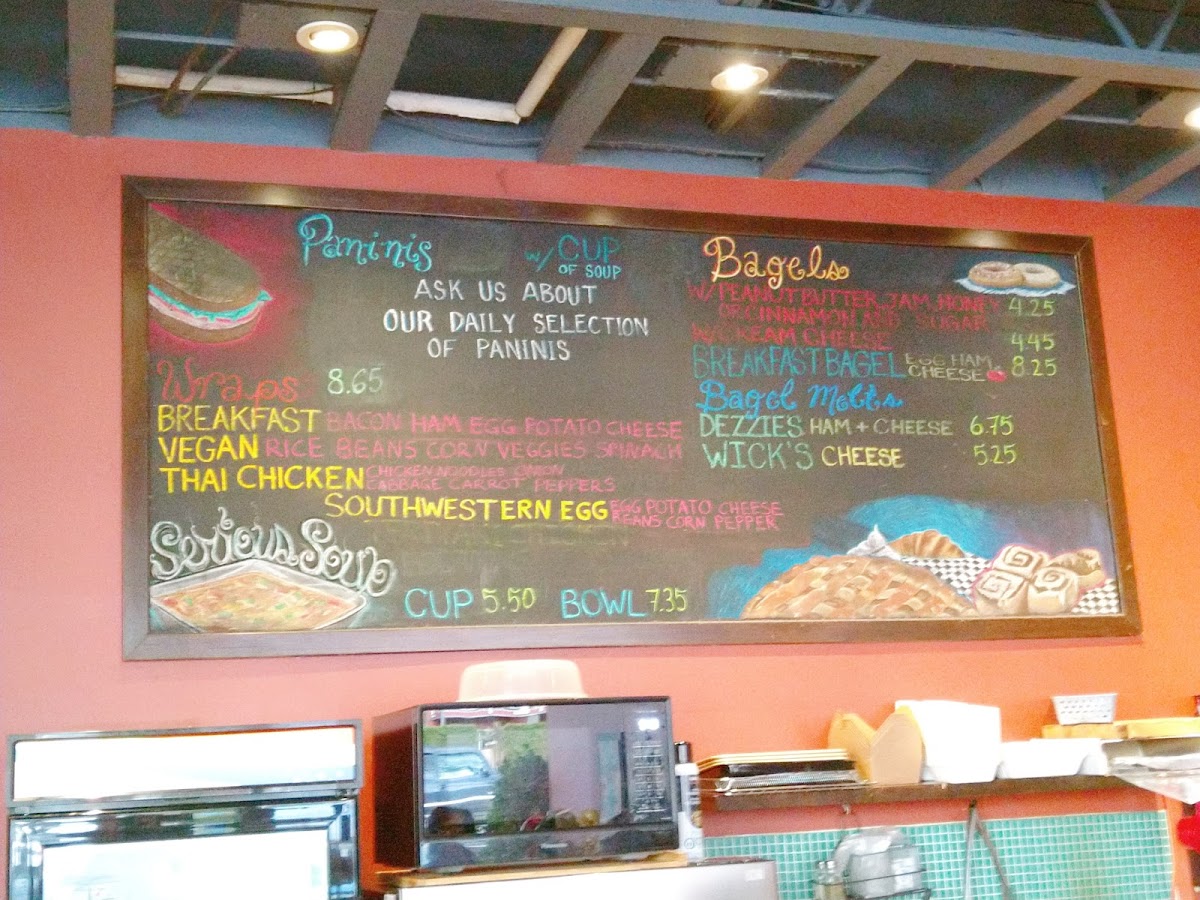 Paninis w/ CUP OF SOUP
ASK US ABOUT
OUR DAILY SELECTION
OF PANINIS
Wraps 8.65
BREAKFAST BACON HAM EGG POTATO CHEESE
VEGAN RICE BEANS CORN VEGGIES SPINACH
THAI CHICKEN CHICKEN NOODLES ONION
CABBAGE CARROT PEPPERS
SOUTHWESTERN EGG EGG POTATO CHEESE
BEANS CORN PEPPER
Serious Soup
CUP 5.50 BOWL 7.35
Bagels
W/ PEANUT BUTTER, JAM, HONEY 4.25
OR CINNAMON AND SUGAR
W/ CREAM CHEESE 4.45
BREAKFAST BAGEL EGG HAM CHEESE 8.25
Bagel Melts
DEZZIE'S HAM + CHEESE 6.75
WICK'S CHEESE 5.25